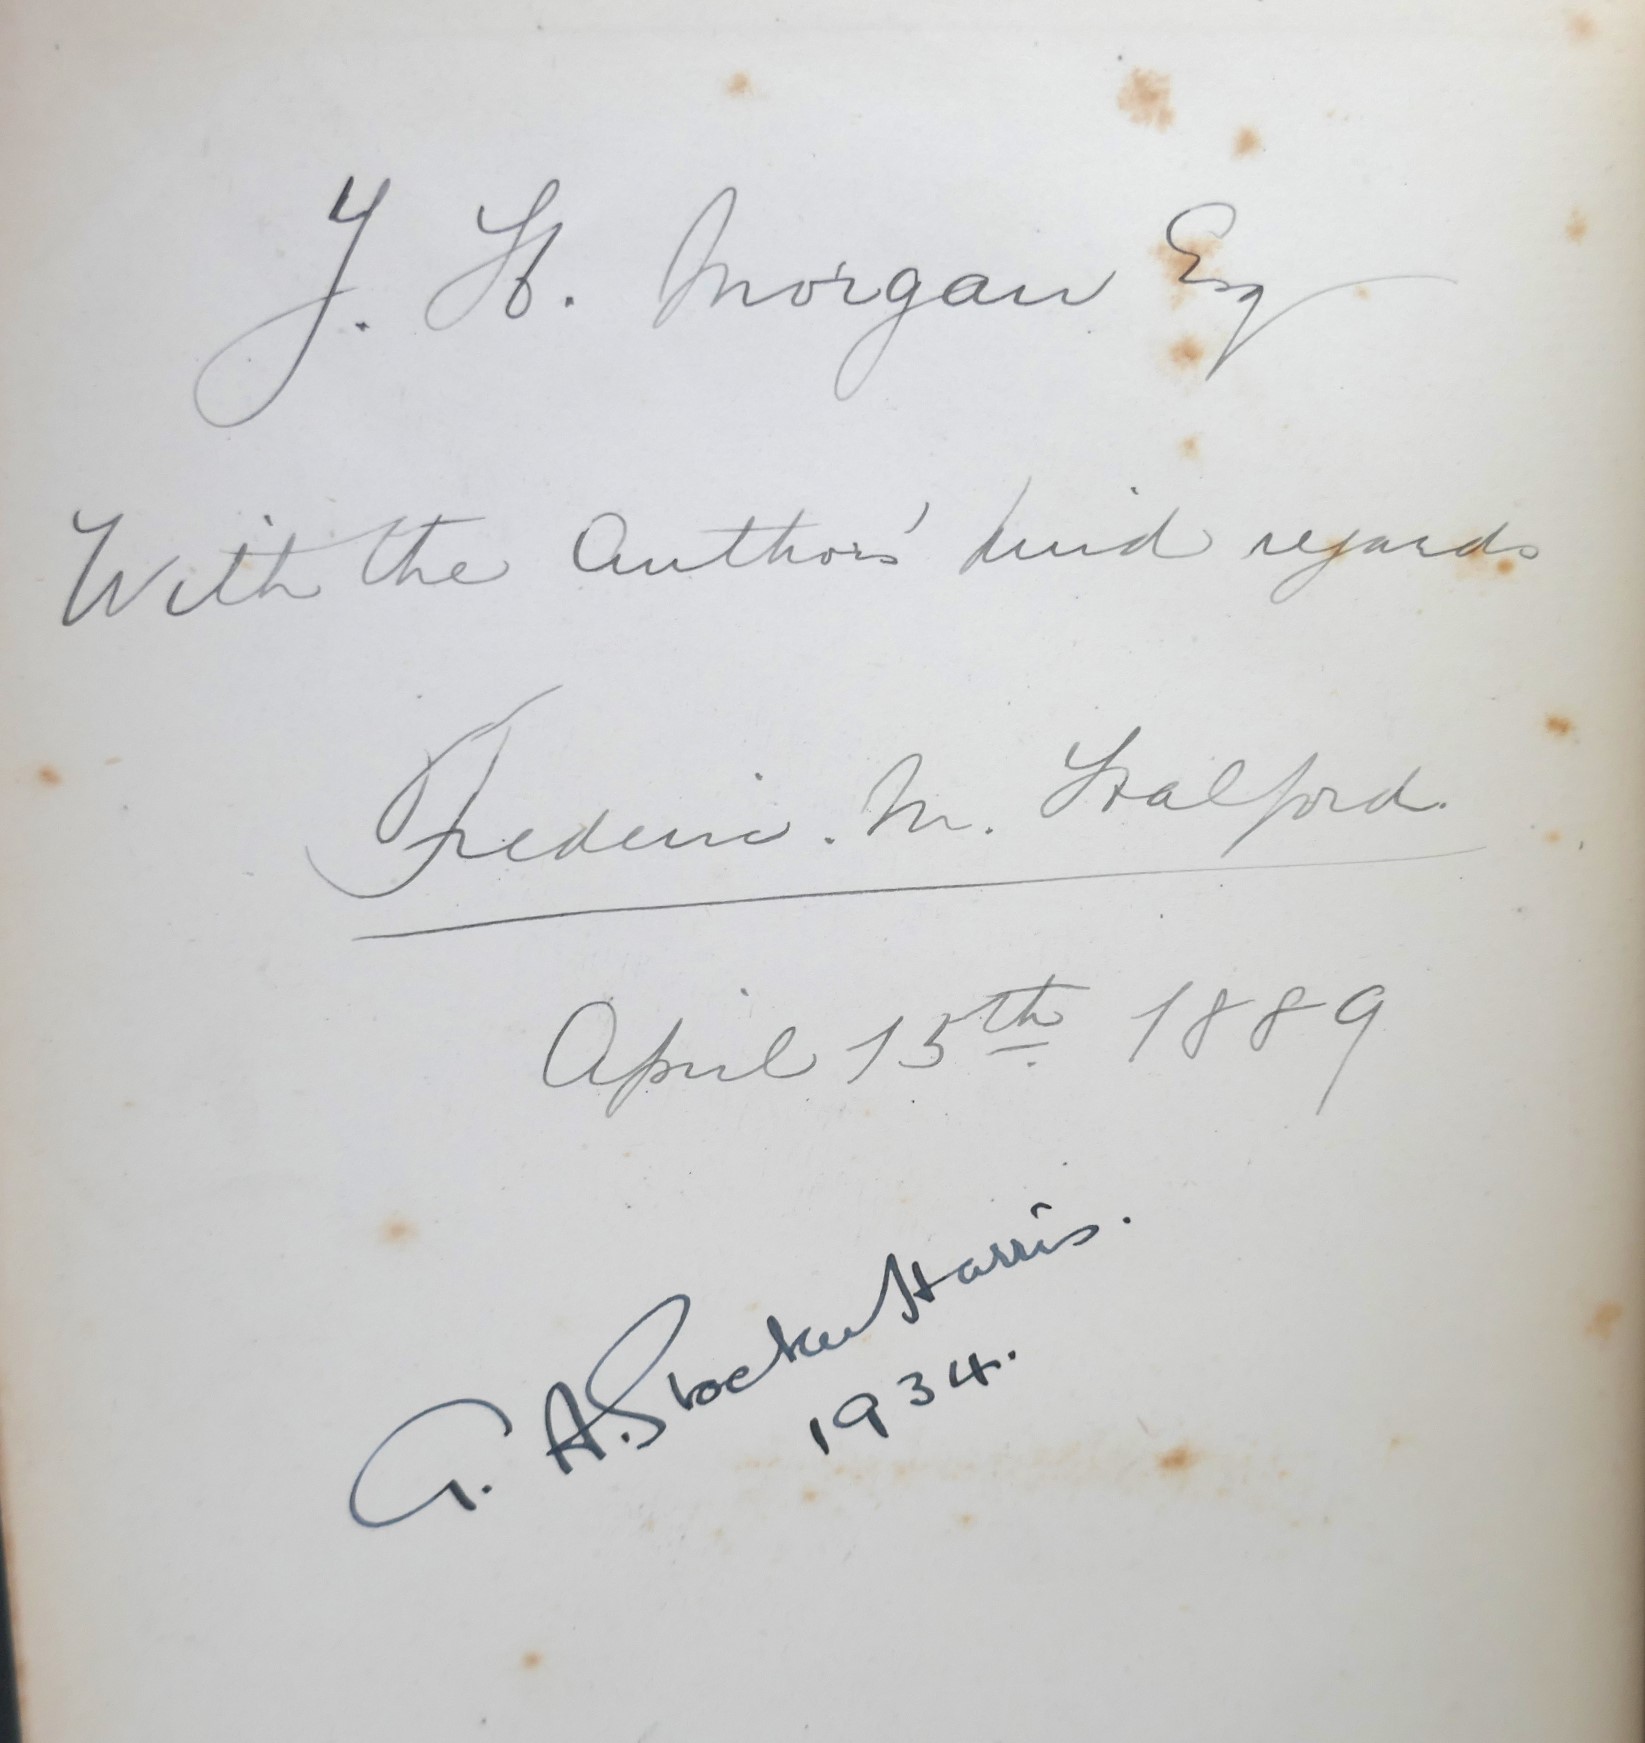 J. H. Morgan Esq
With the Authors' kind regards
Frederic. M. Halford.
April 15th. 1889
G. A. Stocker Harris.
1934.